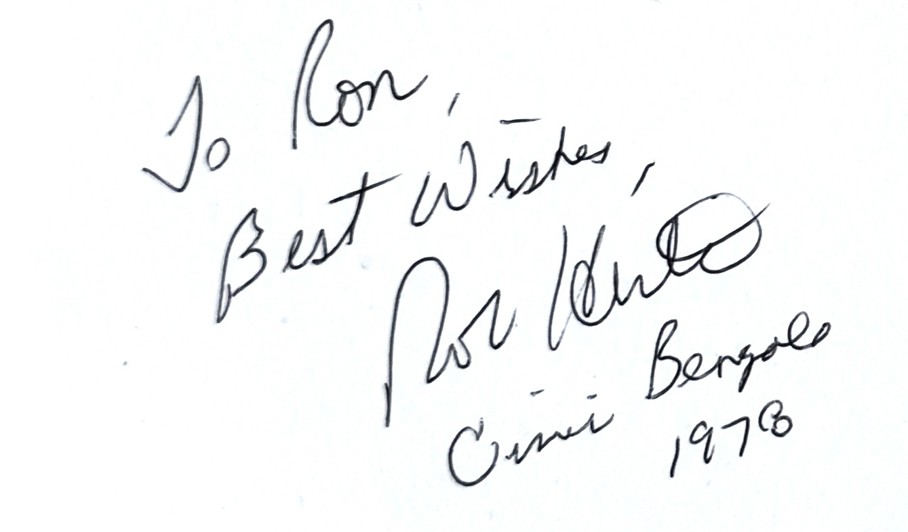 To Ron,
Best Wishes,
Rob Hertel
Cinci Bengals
1978